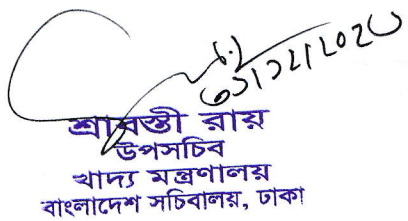 ৩১/১২/২০২০
শ্রাবস্তী রায়
উপসচিব
খাদ্য মন্ত্রণালয়
বাংলাদেশ সচিবালয়, ঢাকা